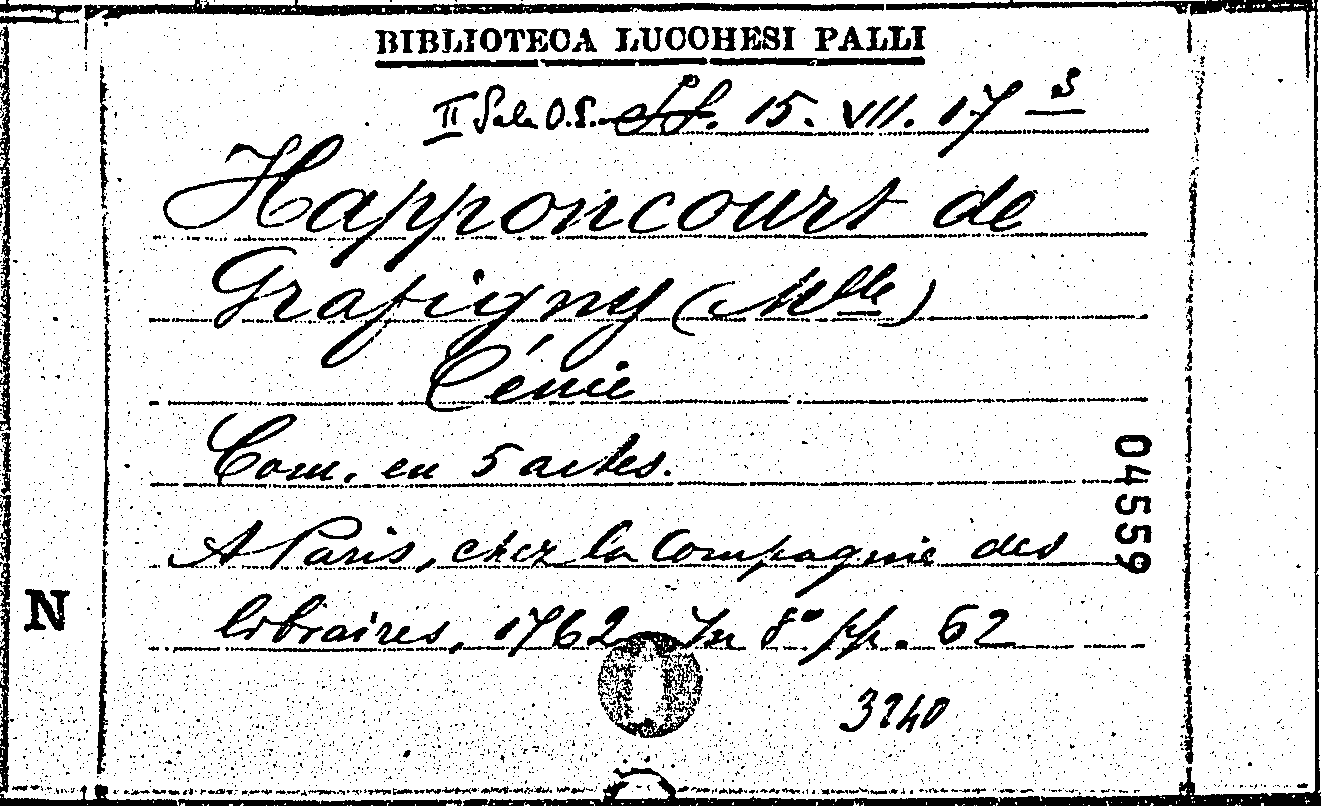 BIBLIOTECA LUCCHESI PALLI
II Sala O.S. 15. VII. 17 3
Happoncourt de
Grafigny (Mlle)
Cénie
Com. en 5 actes.
A Paris, chez la Compagnie des
libraires, 1762 In 8° pp. 62
3240
04559
N